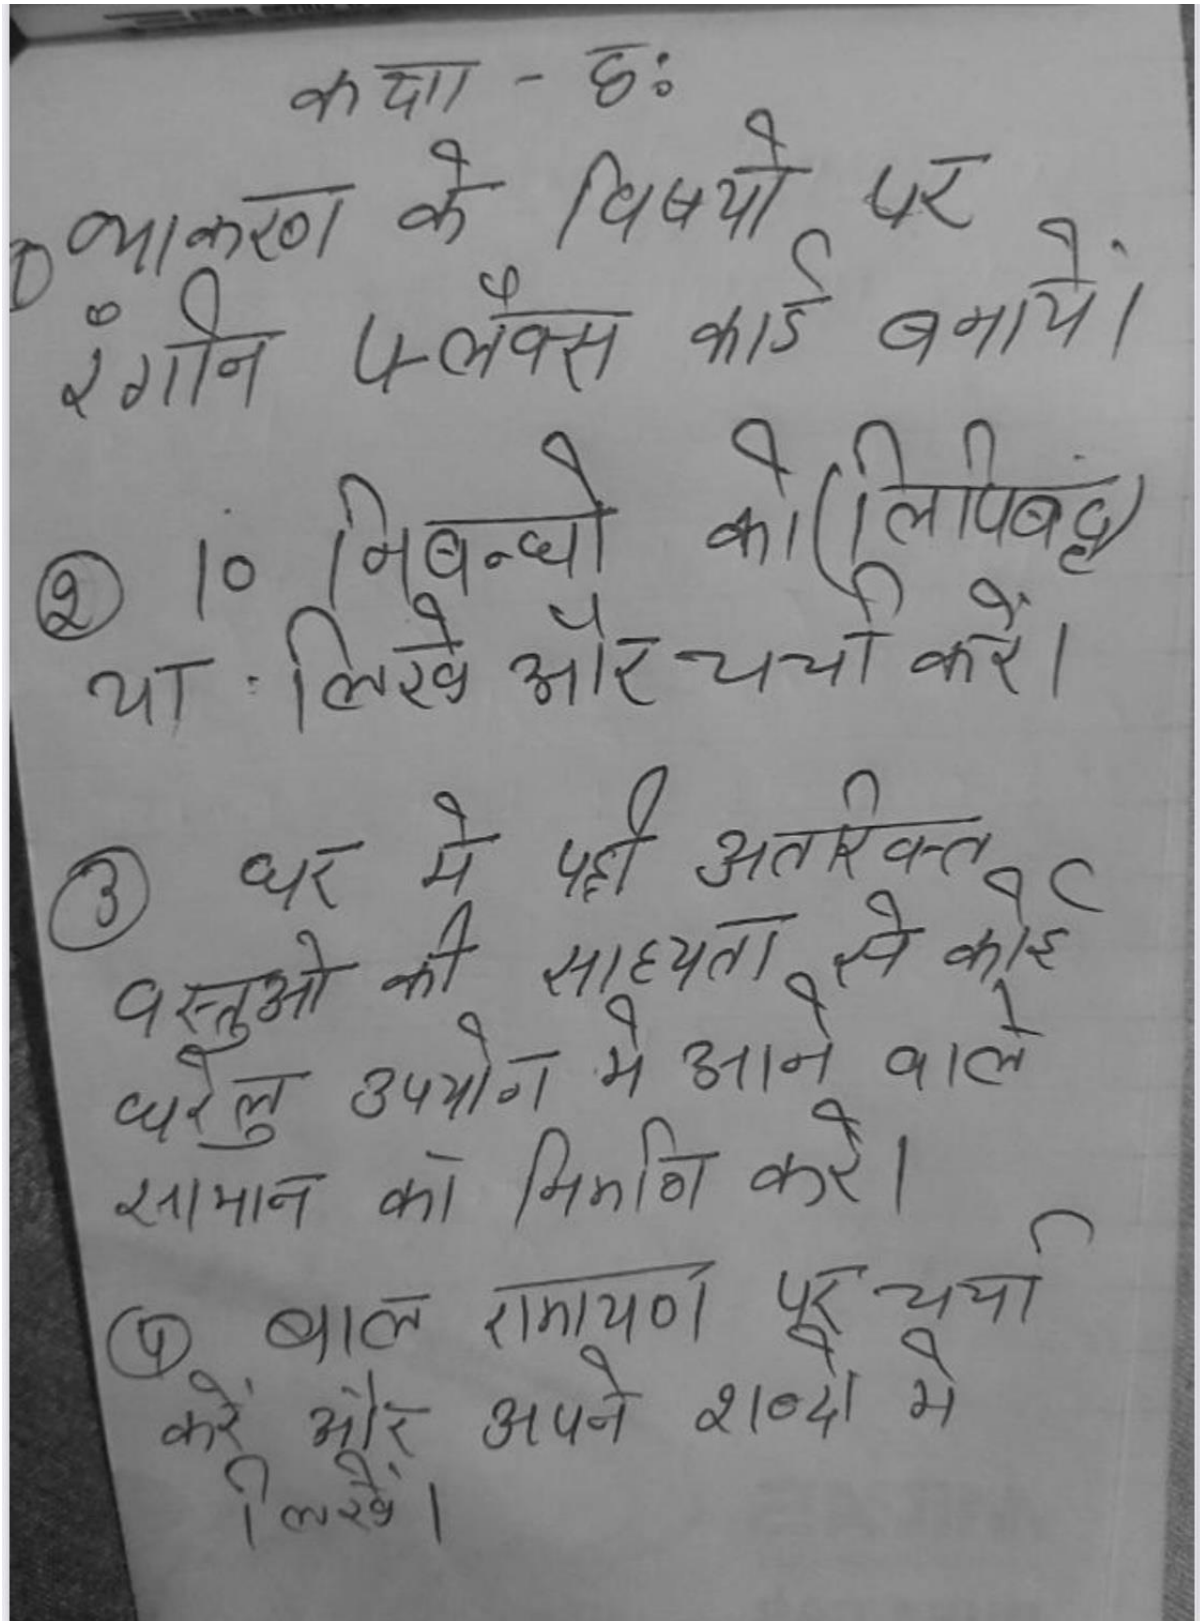 कक्षा - छः
① व्याकरण के विषयो पर
रंगीन फ्लैक्स कार्ड बनाये।
② 10 निबन्धो को (लिपिबद्ध)
या लिखे और चर्चा करें।
③ घर मे पड़ी अतरिक्त
वस्तुओ की साहयता से कोई
घरेलु उपयोग मे आने वाले
सामान को निर्माण करे।
④ बाल रामायण पर चर्चा
करें और अपने शब्दो मे
लिखें।